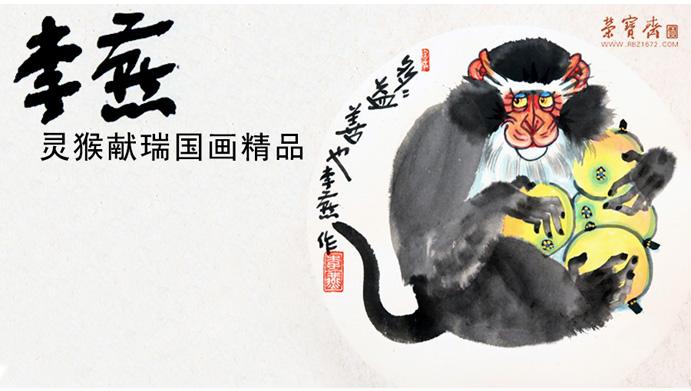 李燕
灵猴献瑞国画精品
荣宝斋
WWW.RBZ1672.COM
多多益善也
李燕作